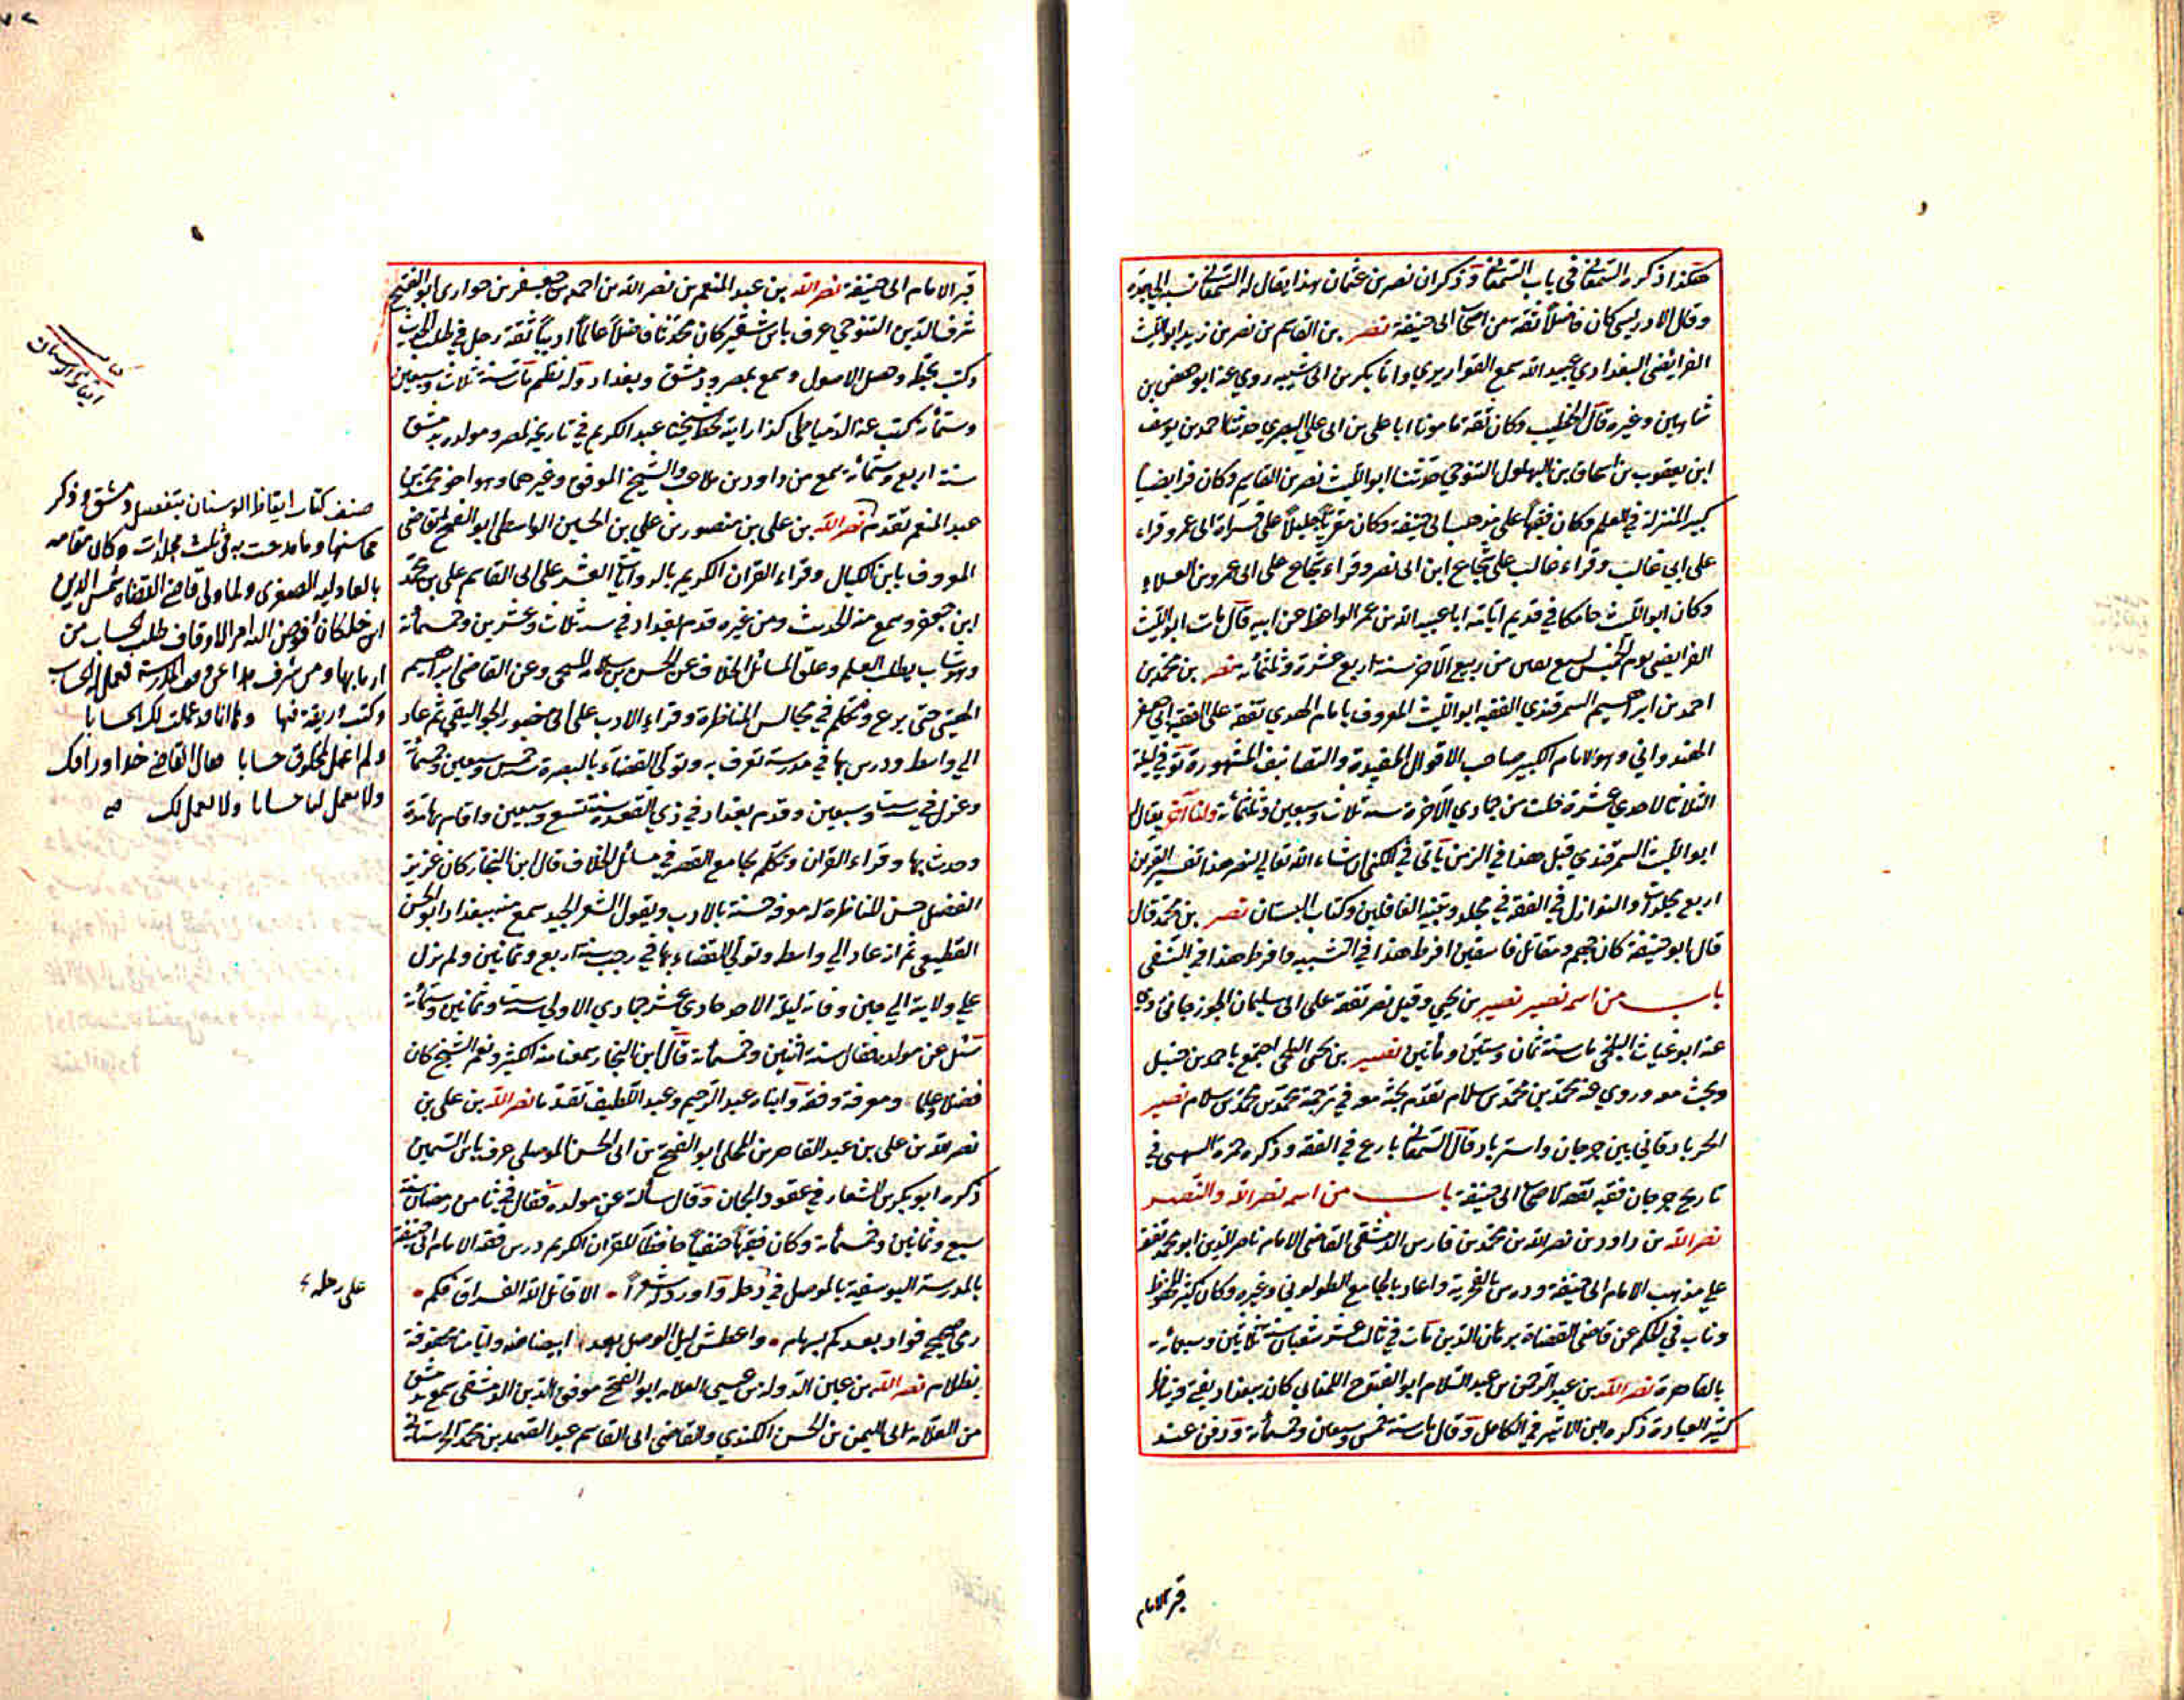 هكذا ذكره السمعاني في باب السمعاني وذكر ان نصر بن عثمان هذا يقال له السمعاني نسبة الى جده
وقال الادريسي كان فاضلاً ثقة من اصحاب ابى حنيفة نصر بن القاسم بن نصر بن زيد ابو الليث
الفرائضى البغدادي عبيد الله سمع القواريري وابا بكر بن ابى شيبه روي عنه ابو حفص بن
شاهين وغيره قال الخطيب وكان ثقة مامونا ابا على بن ابى على البصري حدثنا احمد بن يوسف
ابن يعقوب بن اسحاق بن البهلول التنوخي حدثنا ابو الليث نصر بن القاسم وكان فرايضيا
كبير المنزلة في العلم وكان فقيهاً على مذهب ابى حنيفة وكان مقرياً جليلاً على قراءة ابى عمرو قراء
على ابي غالب وقراء غالب على شجاع ابن ابى نصر وقراء شجاع على ابى عمرو بن العلاء
وكان ابو الليث في قديم ايامه ابا عبيد الله بن عمر الواعظ عن ابيه قال مات ابو الليث
الفرايضى يوم الخميس لسبع بقين من ربيع الآخر سنة اربع عشرة وثلثمائة نصر بن محمد بن
احمد بن ابراهيم السمرقندي الفقيه ابو الليث المعروف بامام الهدي تفقه على الفقيه ابي جعفر
الهندواني وهو الامام الكبير صاحب الاقوال المفيدة والتصانيف المشهورة توفي ليلة
الثلاثا لاحدي عشرة خلت من جمادي الآخرة سنة ثلاث وسبعين وثلثمائة ولنا آخر يقال له
ابو الليث السمرقندي قبل هذا في الزمن يأتي في الكنى ان شاء الله تعالى لنصر هذا تفسير القرآن
اربع مجلدات والنوازل في الفقه في مجلد وتنبيه الغافلين وكتاب البستان نصر بن محمد قال
قال ابو حنيفة كان جهم ومقاتل فاسقين افرط هذا في التشبيه وافرط هذا في النفى
باب من اسمه نصير نصير بن يحيي وقيل نصر تفقه على ابى سليمان الجوزجاني روي
عنه ابو غياث البلخي مات سنة ثمان وستين ومأتين نصير بن يحيى البلخى اجتمع باحمد بن حنبل
وبحث معه وروي عنه محمد بن محمد بن سلام تقدم بحثه معه في ترجمة محمد بن محمد بن سلام نصير
الجرباذقاني بين جرجان واستراباد قال السمعاني بارع في الفقه وذكره حمزة السهمى في
تاريخ جرجان فقيه ثقة لاصحاب ابى حنيفة باب من اسمه نصر الله والنصير
نصر الله بن داود بن نصر الله بن محمد بن فارس الدمشقى القاضى الامام ناصر الدين ابو محمد تفقه
على مذهب الامام ابى حنيفة ودرس بالفخرية واعاد بالجامع الطولوني وغيره وكان كثير الحفظ
وناب في الحكم عن قاضى القضاة برهان الدين مات في ثالث عشر شعبان سنة ثلاثين وسبعمائة
بالقاهرة نصر الله بن عبد الرحمن بن عبد السلام ابو الفتوح اللمغاني كان ببغداد يفتى ويناظر
كثير العبادة ذكره ابن الاثير في الكامل وقال مات سنة خمس وسبعين وخمسمائة ودفن عند
قبر الامام
قبر الامام ابى حنيفة نصر الله بن عبد المنعم بن نصر الله بن احمد بن جعفر بن حواري ابو الفتح
شرف الدين التنوخي عرف بابن شقير كان محدثا فاضلاً عالماً اديباً ثقة رحل في طلب الحديث
وكتب بخطه وحصل الاصول وسمع بمصر ودمشق وبغداد وله نظم مات سنة ثلاث وسبعين
وستمائة كتب عنه الدمياطى كذا رايته بخط شيخنا عبد الكريم في تاريخه لمصر ومولده بدمشق
سنة اربع وستمائة سمع من داود بن ملاعب والشيخ الموفق وغيرهما وهو اخو محمد بن
عبد المنعم تقدم نصر الله بن على بن منصور بن علي بن الحسين الواسطى ابو الفتح القاضى
المعروف بابن الكيال وقراء القران الكريم بالروايات العشر على ابى القاسم على بن محمد
ابن جعفر وسمع منه الحديث ومن غيره قدم بغداد في سنة ثلاث وعشرين وخمسمائة
وهو شاب يطلب العلم وعلق المسائل الخلاف عن الحسن بن سلامة المنبجى وعن القاضى ابراهيم
الهيتى حتى برع وتكلم في مجالس المناظرة وقراء الادب على ابى منصور الجواليقي ثم عاد
الي واسط ودرس بها في مدرسة تعرف به وتولى القضاء بالبصرة سنة خمس وسبعين وخمسمائة
وعزل في سنة ست وسبعين وقدم بغداد في ذي القعدة سنة تسع وسبعين واقام بها مدة
وحدث بها وقراء القران وتكلم بجامع القصر في مسائل الخلاف قال ابن النجار كان غزير
الفضل حسن المناظرة له معرفة حسنة بالادب ويقول الشعر الجيد سمع منه ببغداد ابو الحسن
القطيعى ثم انه عاد الي واسط وتولى القضاء بها في رجب سنة اربع وثمانين ولم يزل
علي ولايته الي حين وفاته ليلة الاحد حادي عشر جمادي الاولى سنة ست وثمانين وستمائة
سئل عن مولده فقال سنة اثنين وخمسمائة قال ابن النجار سمعنا منه الكثير ونعم الشيخ كان
فضلا وعلما ومعرفة وفقه وابناه عبد الرحيم وعبد اللطيف تقدما نصر الله بن على بن
نصر الله بن على بن عبد القاهر بن المحلى ابو الفتح بن ابى الحسن الموصلى عرف بابن السمين
ذكره ابو بكر بن الشعار في عقود الجمان وقال سألته عن مولده فقال في ثامن رمضان سنة
سبع وثمانين وخمسمائة وكان فقيهاً حنفياً حافظاً للقران الكريم درس فقه الامام ابى حنيفة
بالمدرسة اليوسفية بالموصل في دجلة واورد له شعراً الا قاتل الله الفراق فكم
رمى صحيح فؤاد بعدكم بسهام واعطش ليل الوصل بعد ابيضاضه وايامنا محفوفة
بظلام نصر الله بن عين الدولة بن عيسى العلامة ابو الفتح موفق الدين الدمشقى سمع بدمشق
من العلامة ابى اليمن بن الحسن الكندي والقاضى ابى القاسم عبد الصمد بن محمد الحرستاني
كتاب
ايقاظ الوسنان
صنف كتاب ايقاظ الوسنان بتفضيل دمشق وذكر
محاسنها وما مدحت به في ثلث مجلدات وكان مقامه
بالعادلية الصغرى ولما ولى قاضى القضاة شمس الدين
ابن خلكان فوض اليه امر الاوقاف طلب الحساب من
اربابها ومن شرف هذا عن وقف المدرسة فعمل له الحساب
وكتب وريقة فيها ولما عملت لك الحسابا
ولم اعمل لمخلوق حسابا فقال القاضى خذ اوراقك
ولا تعمل لنا حسابا ولا نعمل لك